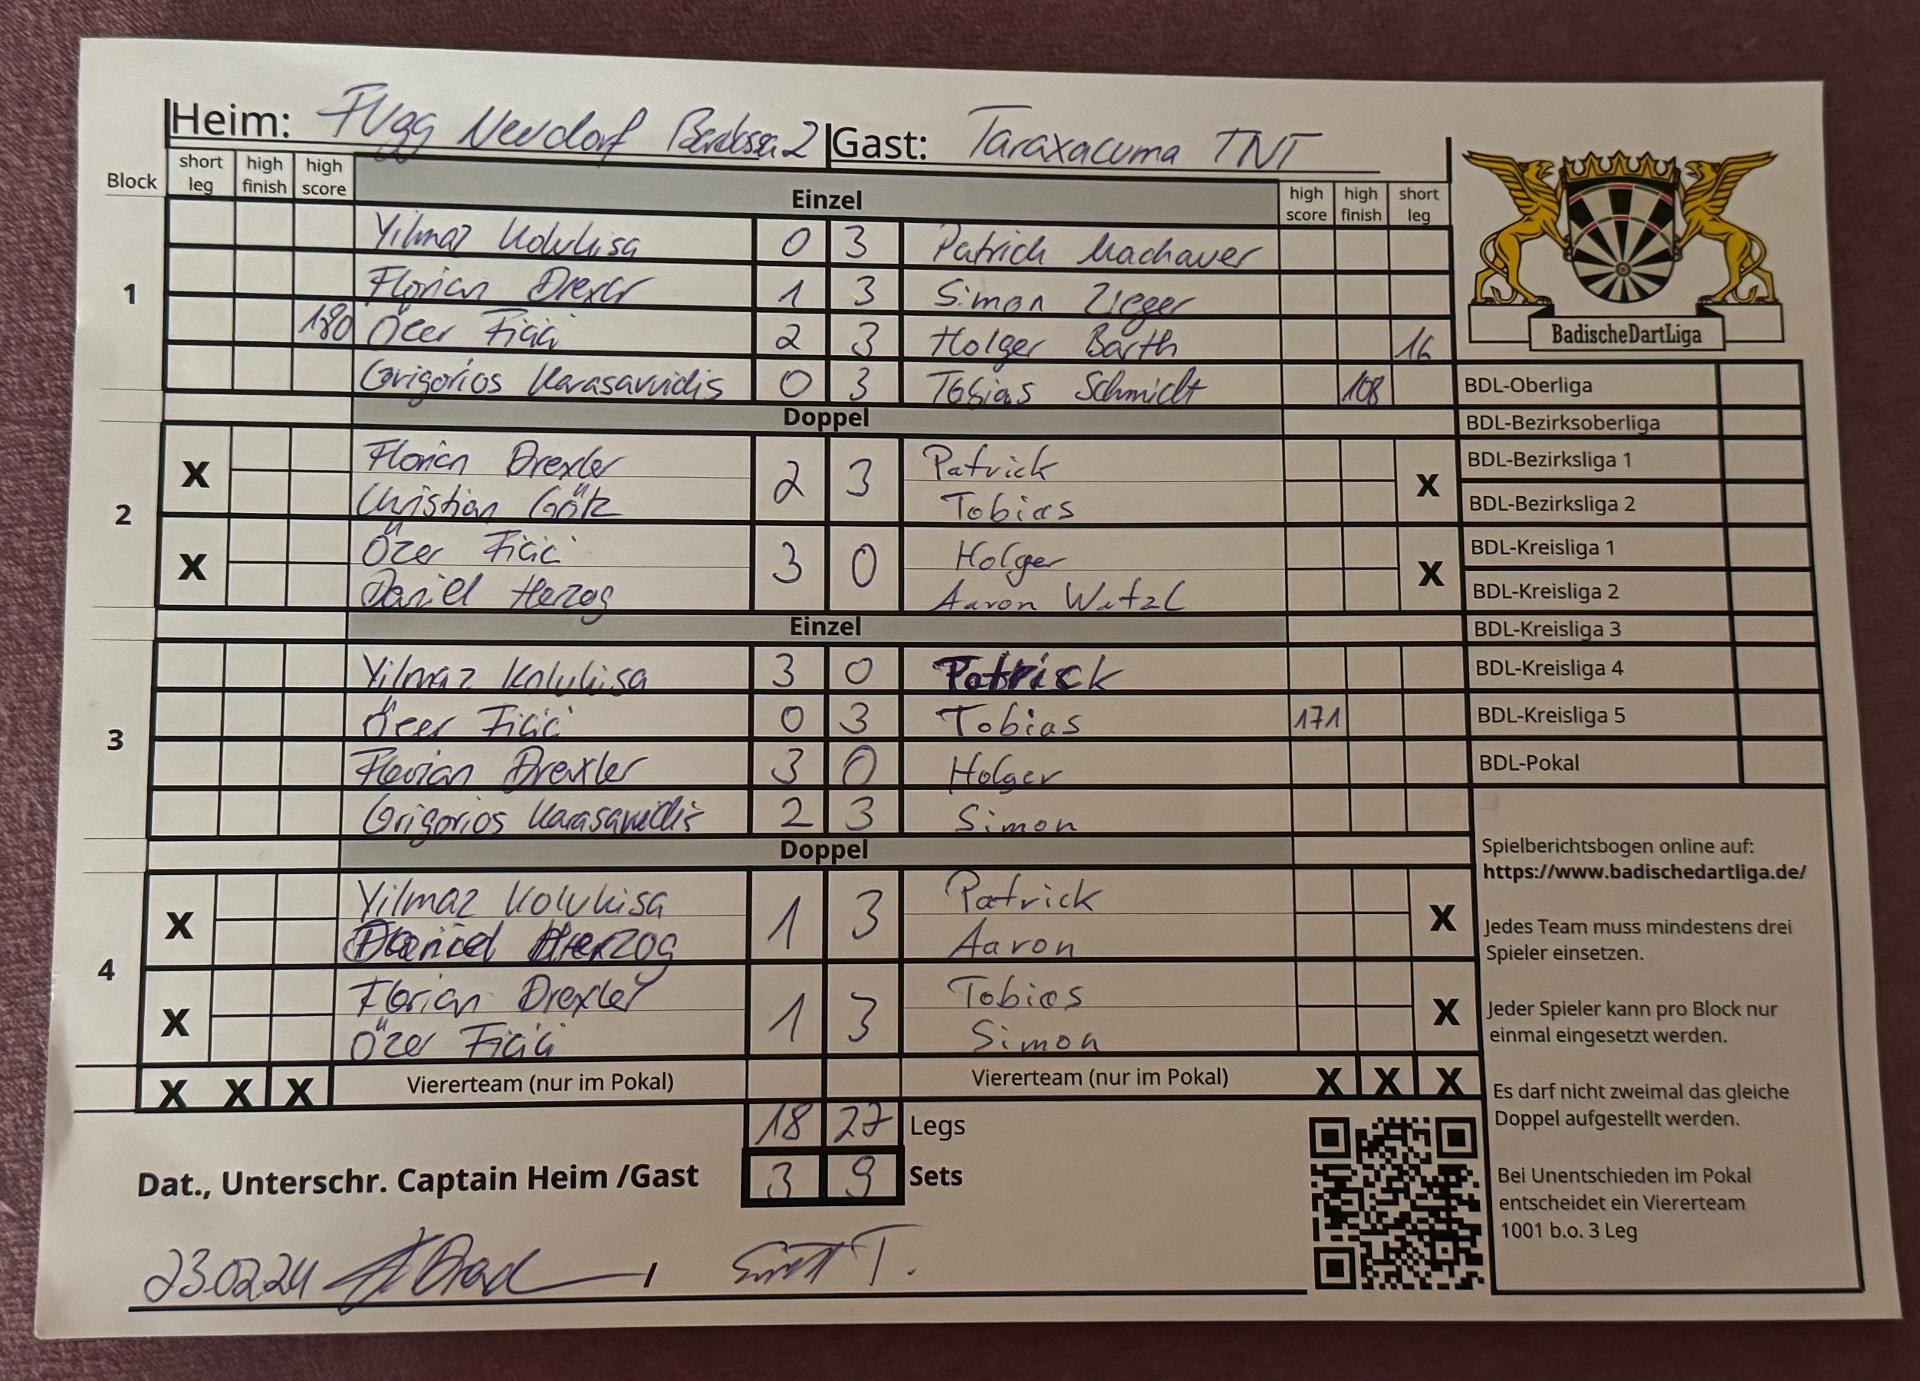 Heim: FVgg Neudorf 2 Gast: Taraxacuma TNT
Block short leg high finish high score Einzel high score high finish short leg
1
Yilmaz Kolukisa 0 3 Patrick Machauer
Florian Drexer 1 3 Simon Zieger
180 Öcer Ficici 2 3 Holger Barth 16
Grigorios Karasavvidis 0 3 Tobias Schmidt 108
Doppel
2
X Florian Drexler 2 3 Patrick X
Christian Götz Tobias
X Özer Ficici 3 0 Holger X
Daniel Herzog Aaron Wetzl
Einzel
3
Yilmaz Kolukisa 3 0 Patrick
Öcer Ficici 0 3 Tobias 171
Florian Drexler 3 0 Holger
Grigorios Karasavvidis 2 3 Simon
Doppel
4
X Yilmaz Kolukisa 1 3 Patrick X
Daniel Herzog Aaron
X Florian Drexler 1 3 Tobias X
Özer Ficici Simon
X X X Viererteam (nur im Pokal) Viererteam (nur im Pokal) X X X
18 27 Legs
Dat., Unterschr. Captain Heim /Gast 3 9 Sets
23.02.24 /
BadischeDartLiga
BDL-Oberliga
BDL-Bezirksoberliga
BDL-Bezirksliga 1
BDL-Bezirksliga 2
BDL-Kreisliga 1
BDL-Kreisliga 2
BDL-Kreisliga 3
BDL-Kreisliga 4
BDL-Kreisliga 5
BDL-Pokal
Spielberichtsbogen online auf:
https://www.badischedartliga.de/
Jedes Team muss mindestens drei
Spieler einsetzen.
Jeder Spieler kann pro Block nur
einmal eingesetzt werden.
Es darf nicht zweimal das gleiche
Doppel aufgestellt werden.
Bei Unentschieden im Pokal
entscheidet ein Viererteam
1001 b.o. 3 Leg